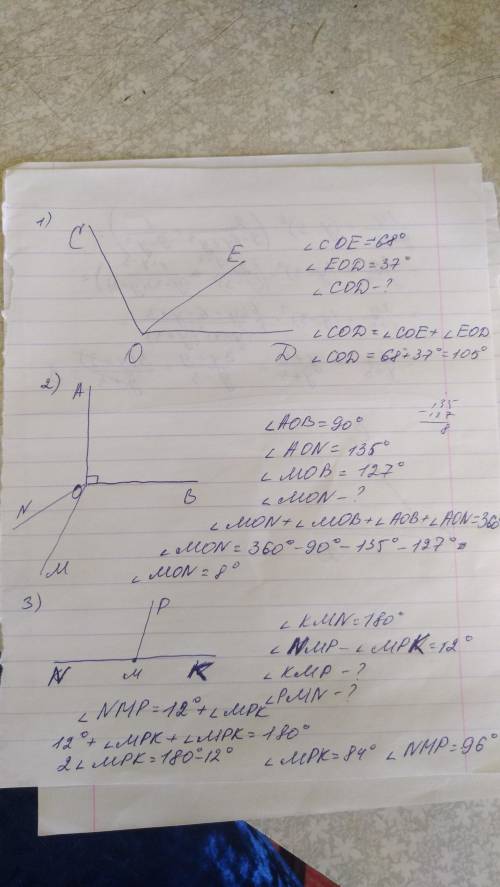 1)
C
E
O
D
∠COE=68°
∠EOD=37°
∠COD-?
∠COD=∠COE+∠EOD
∠COD=68°+37°=105°
2)
A
O
N
B
M
135
-127
8
∠AOB=90°
∠AON=135°
∠MOB=127°
∠MON-?
∠MON+∠MOB+∠AOB+∠AON=360
∠MON=360°-90°-135°-127°=
∠MON=8°
3)
P
N
M
K
∠KMN=180°
∠NMP-∠MPK=12°
∠KMP-?
∠PMN-?
∠NMP=12°+∠MPK
12°+∠MPK+∠MPK=180°
2∠MPK=180°-12° ∠MPK=84° ∠NMP=96°